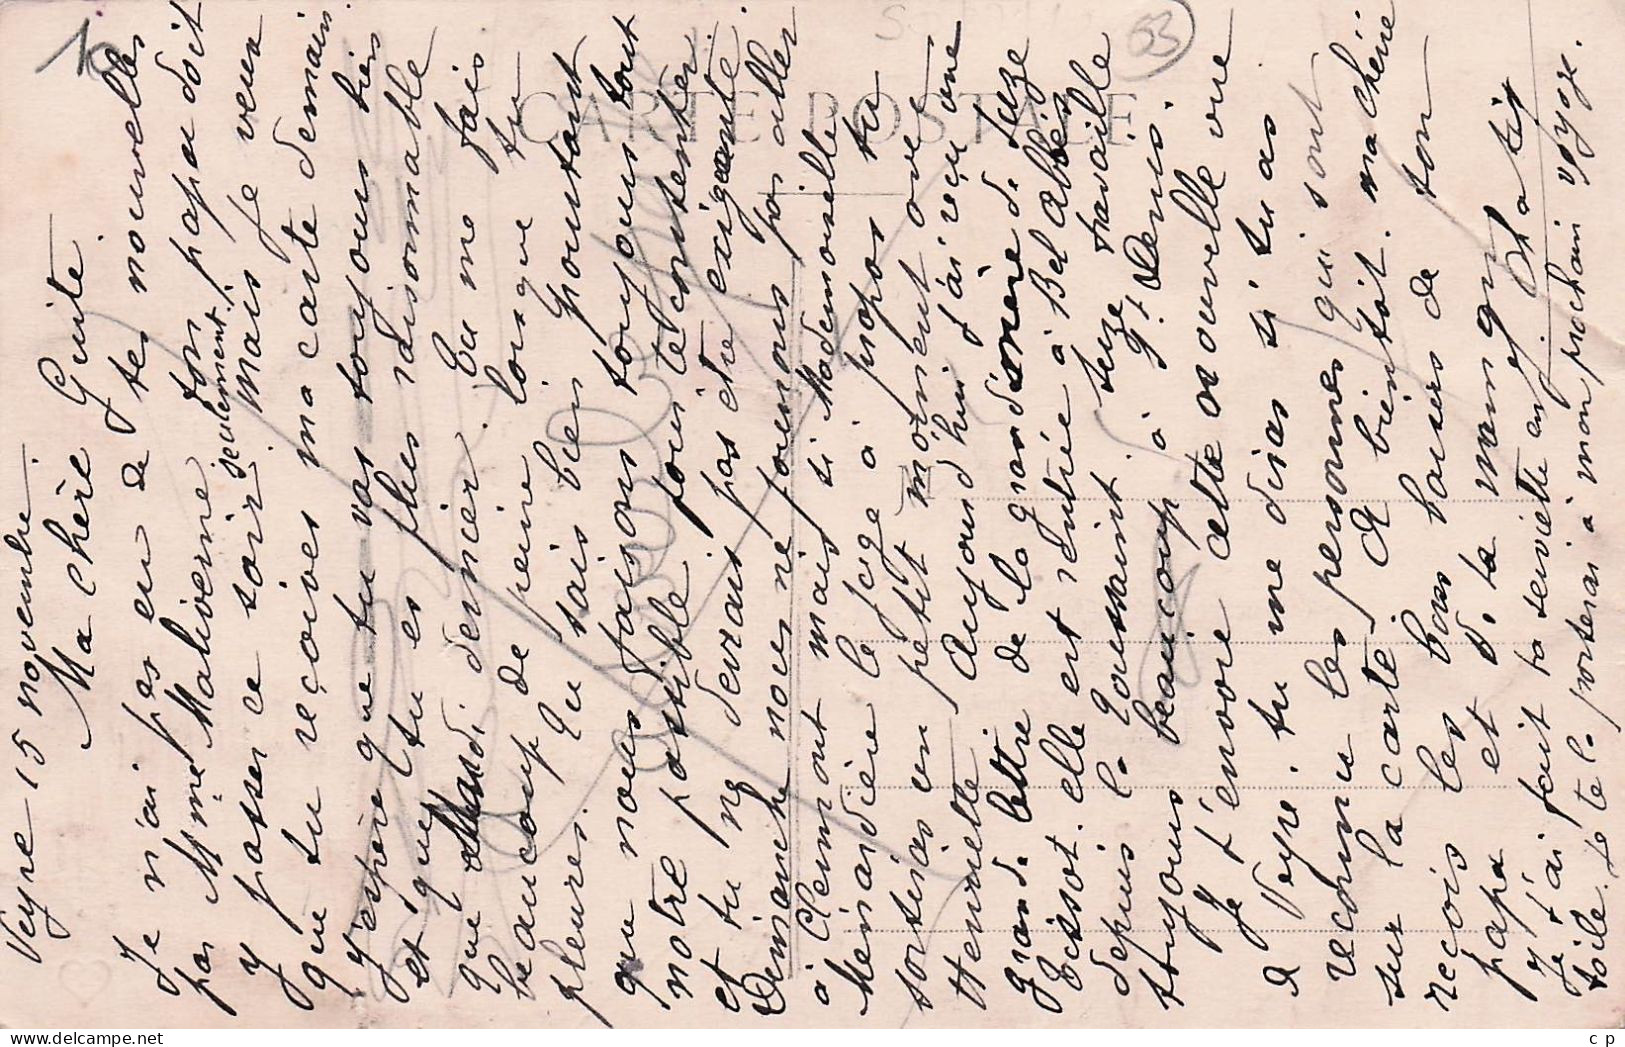 Veyre 15 novembre
Ma chère Guite
Je n'ai pas eu de tes nouvelles
par Mme Maliverne seulement, ton papa doit
y passer ce soir mais je veux
que tu reçoives ma carte demain.
J'espère que tu vas toujours bien
et que tu es plus raisonnable
que mardi dernier. Tu me fais
beaucoup de peine lorsque tu
pleures. Tu sais bien pourtant
que nous faisons toujours tout
notre possible pour te contenter
et tu ne devrais pas être exigeante.
Dimanche nous ne pourrons pas aller
à Clermont mais si Mademoiselle
Ménardière le juge à propos tu
sortiras un petit moment avec
Henriette Aujourd'hui j'ai reçu une
grande lettre de la grand'mère de Suze
Tissot. elle est rentrée à Bel abbés
depuis la Toussaint. Suze travaille
toujours beaucoup à St Denis.
Je t'envoie cette nouvelle vue
de Veyre. tu me diras si tu as
reconnu les personnes qui sont
sur la carte. A bientôt. ma chérie
reçois les bons baisers de ton
papa et de ta maman
Je t'ai fait ta serviette en
toile. Je te la porterai à mon prochain voyage.
CARTE POSTALE
53
c p